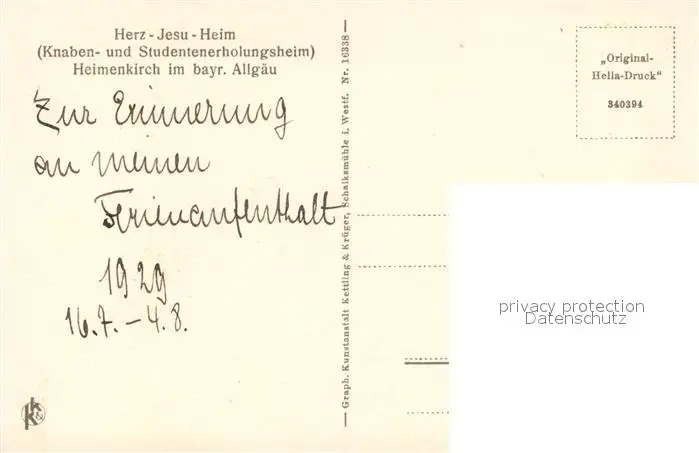 Herz-Jesu-Heim
(Knaben- und Studentenerholungsheim)
Heimenkirch im bayr. Allgäu
Zur Erinnerung
an meinen
Ferienaufenthalt
1929
16.7. – 4.8.
K&K
— Graph. Kunstanstalt Kettling & Krüger, Schalksmühle i. Westf. Nr. 16338 —
„Original-
Hella-Druck“
340394
privacy protection
Datenschutz